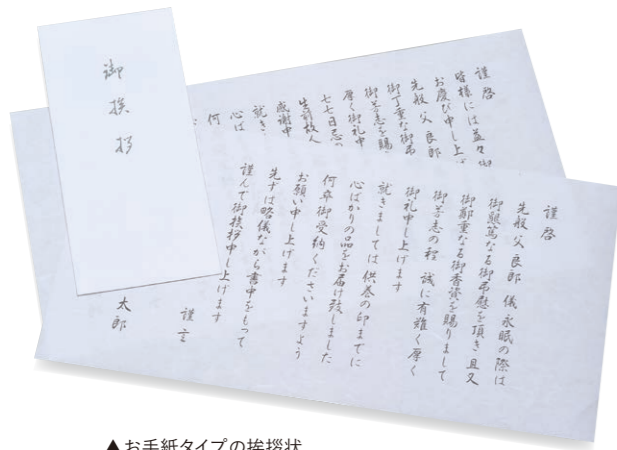 御挨拶
謹啓
皆様には益々御
お慶び申し上げ
先般 父 良郎
御丁重な御弔
御芳志を賜
厚く御礼申
七七日忌の
生前故人
感謝申
就き
心ば
何
謹啓
先般 父 良郎 儀 永眠の際は
御懇篤なる御弔慰を頂き 且又
御鄭重なる御香資を賜りまして
御芳志の程 誠に有難く厚く
御礼申し上げます
就きましては 供養の印までに
心ばかりの品をお届け致しました
何卒御受納くださいますよう
お願い申し上げます
先ずは略儀ながら書中をもって
謹んで御挨拶申し上げます
謹言
太郎
▲お手紙タイプの挨拶状